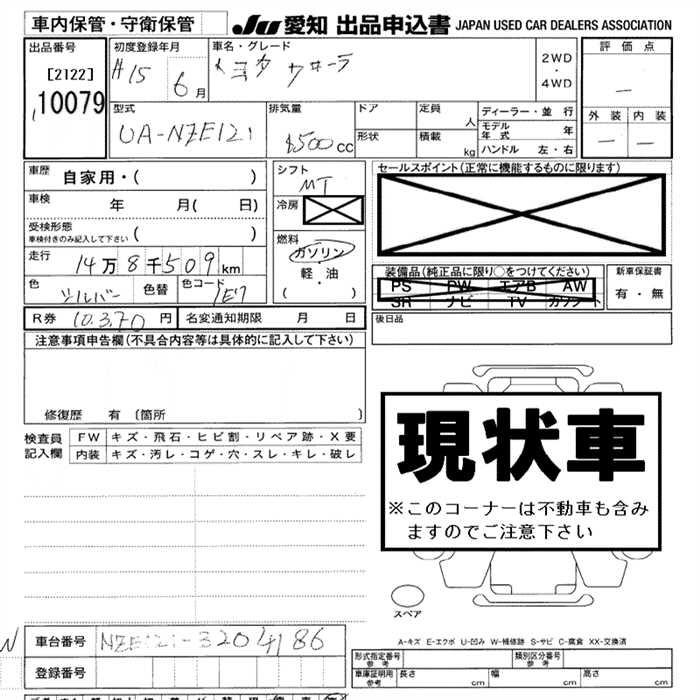 車内保管・守衛保管
JU 愛知 出品申込書 JAPAN USED CAR DEALERS ASSOCIATION
出品番号
[2122]
10079
初度登録年月
H15 6月
車名・グレード
トヨタ カローラ
2WD
・
4WD
評価点
—
外装 内装
— —
型式
UA-NZE121
排気量
1500 CC
ドア
形状
定員 人
積載 kg
ディーラー・並行
モデル年式 年
ハンドル 左・右
車歴 自家用・( )
車検 年 月( 日)
受検形態
車検付きのみ記入して下さい ( )
走行 14万8千509km
色 シルバー 色替 色コード 1E7
R券 10,370円 名変通知期限 月 日
シフト
MT
冷房
燃料
ガソリン
・
軽・油
( )
セールスポイント(正常に機能するものに限ります)
装備品(純正品に限り○をつけてください)
PS PW エアB AW
SR ナビ TV カワシート
新車保証書
有・無
後日品
注意事項申告欄(不具合内容等は具体的に記入して下さい)
修復歴 有〔箇所 〕
検査員記入欄
FW キズ・飛石・ヒビ割・リペア跡・X要
内装 キズ・汚レ・コゲ・穴・スレ・キレ・破レ
現状車
※このコーナーは不動車も含み
ますのでご注意下さい
スペア
A-キズ E-エクボ U-凹み W-補修跡 S-サビ C-腐食 XX-交換済
車台番号 NZE121-3204186
登録番号
形式指定番号 参考
類別区分番号 参考
車庫証明用 参考 長さ cm 幅 cm 高さ cm